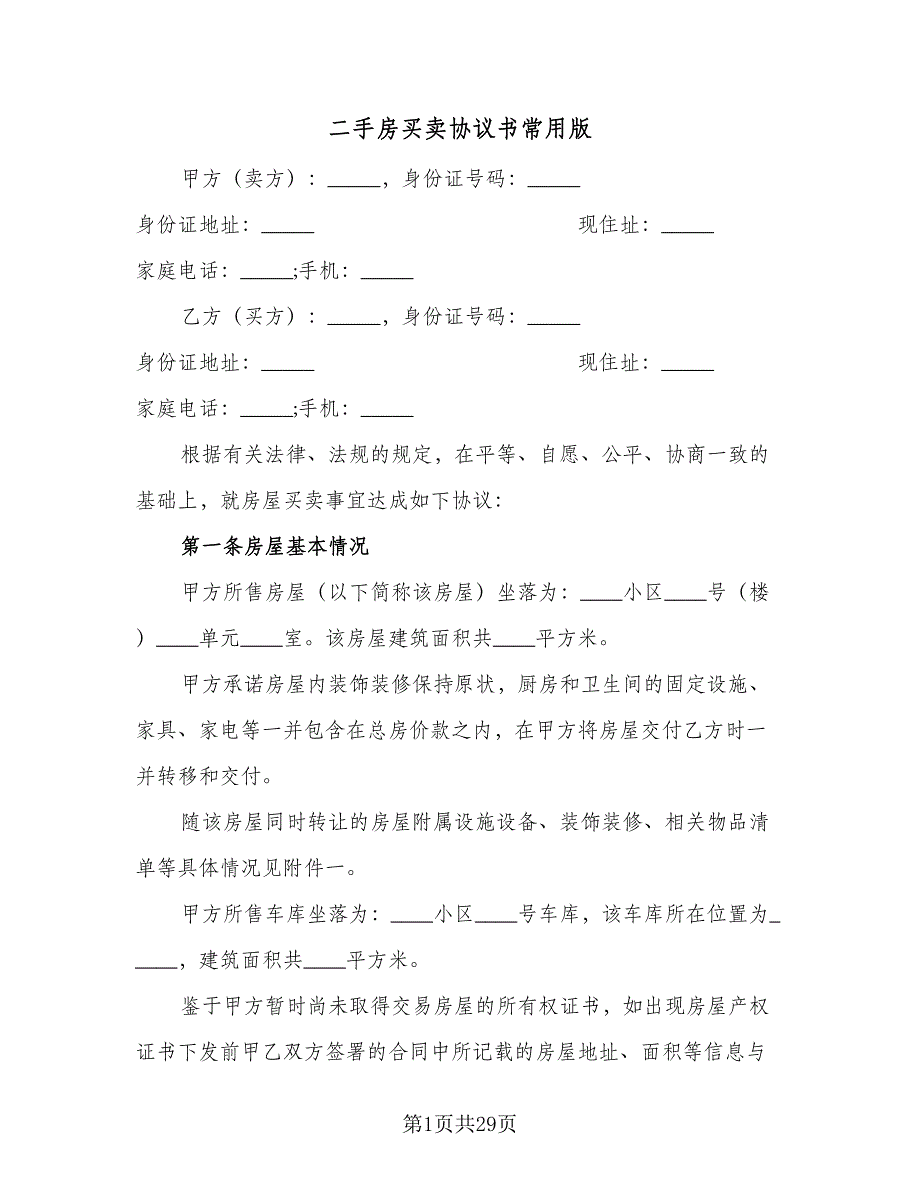 二手房买卖协议书常用版
甲方（卖方）：_____，身份证号码：_____
身份证地址：_____ 现住址：_____
家庭电话：_____;手机：_____
乙方（买方）：_____，身份证号码：_____
身份证地址：_____ 现住址：_____
家庭电话：_____;手机：_____
根据有关法律、法规的规定，在平等、自愿、公平、协商一致的
基础上，就房屋买卖事宜达成如下协议：
第一条房屋基本情况
甲方所售房屋（以下简称该房屋）坐落为：____小区____号（楼
）____单元____室。该房屋建筑面积共____平方米。
甲方承诺房屋内装饰装修保持原状，厨房和卫生间的固定设施、
家具、家电等一并包含在总房价款之内，在甲方将房屋交付乙方时一
并转移和交付。
随该房屋同时转让的房屋附属设施设备、装饰装修、相关物品清
单等具体情况见附件一。
甲方所售车库坐落为：____小区____号车库，该车库所在位置为_
____，建筑面积共____平方米。
鉴于甲方暂时尚未取得交易房屋的所有权证书，如出现房屋产权
证书下发前甲乙双方签署的合同中所记载的房屋地址、面积等信息与
第1页共29页